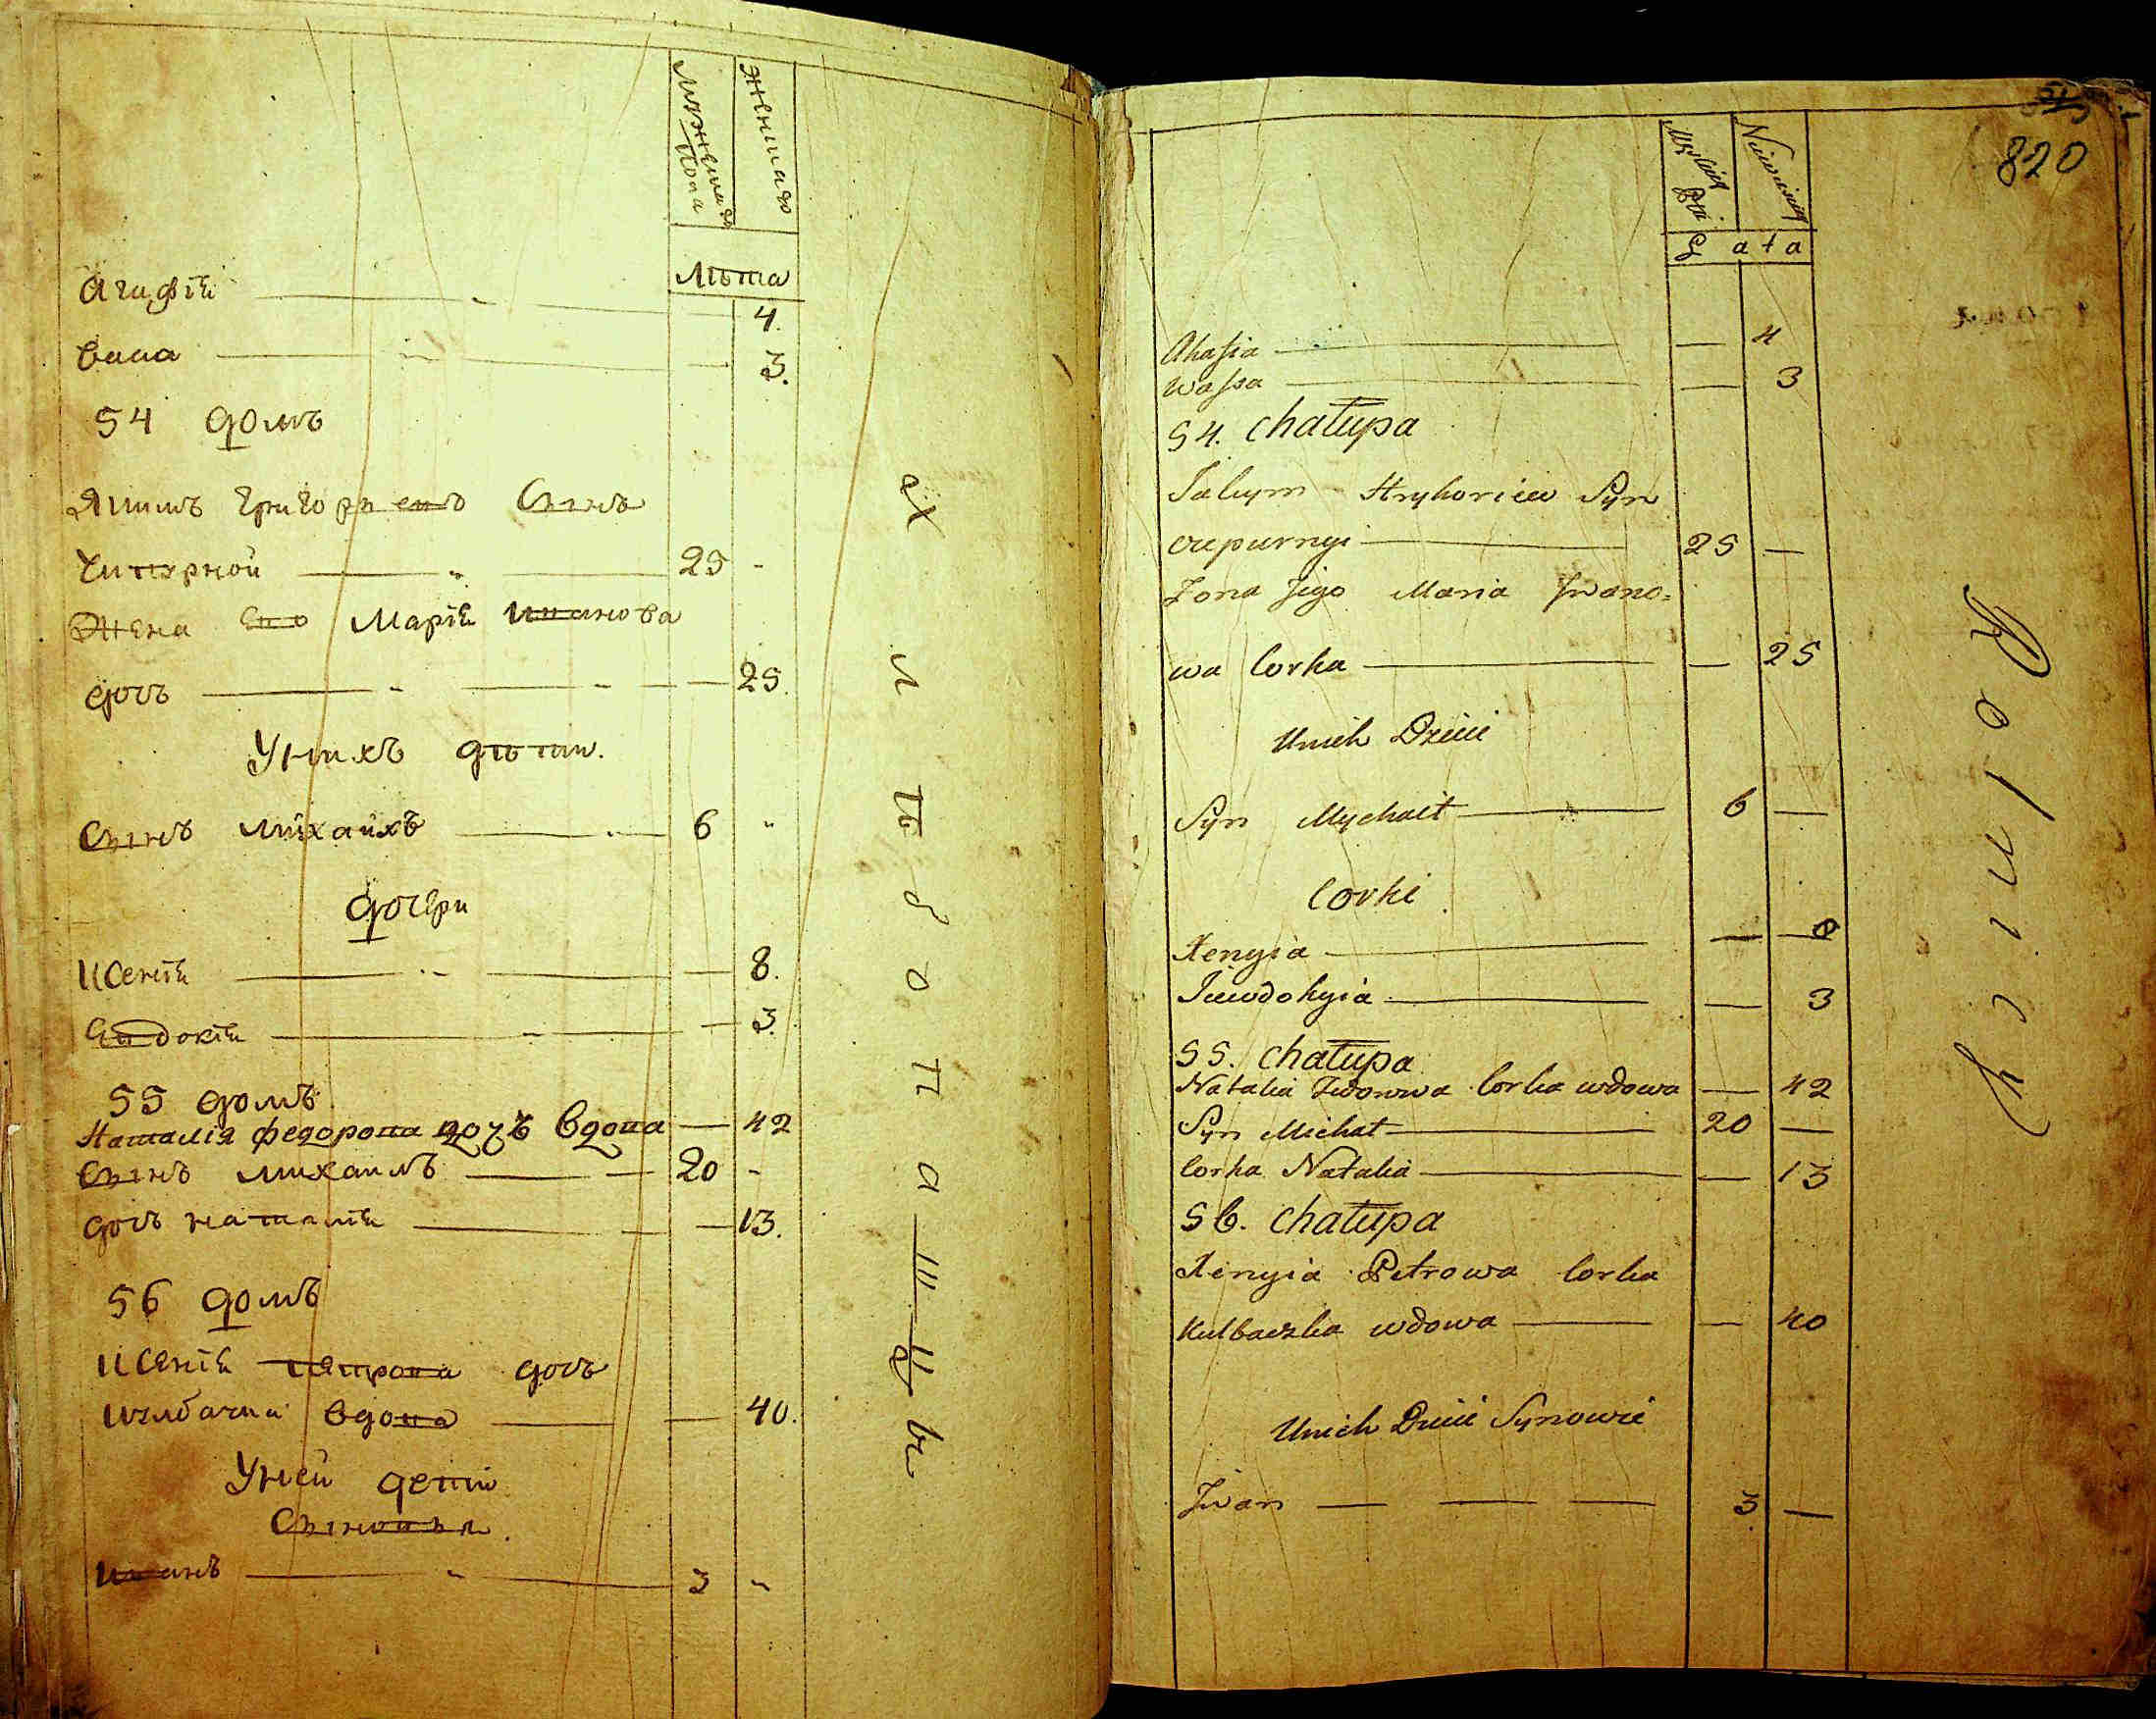 мужеска
пола
женскаго
Лѣта
Агафія 4.
Васса 3.
54 домъ
Якимъ Григорьевъ Сынъ
Чипурной 25 -
Жена Его Марія Иванова
дочь 25.
У нихъ дѣти.
Сынъ Михайлъ 6 "
дочери
Ксенія 8.
Евдокія 3.
55 домъ
Наталія Федорова дочь вдова 42
Сынъ Михаилъ 20 -
дочь Наталія 13.
56 домъ
Ксенія Петрова дочь
Кулбачка вдова 40.
У ней дети
Сыновья.
Иванъ 3 "
хлѣбопашцы
820
Męskiej
płci
Niewieściej
Lata
Ahafia — 4
Wassa — 3
54. Chałupa
Jakym Hryhoriew Syn
Czepurnyi 25 —
Zona Jego Maria Iwano=
wa Corka — 25
Unich Dzieci
Syn Mychaił 6 —
Corki
Xenyia — 8
Jewdokyia — 3
55. Chałupa
Natalia Fedorowa Corka wdowa — 42
Syn Michał 20 —
Corka Natalia — 13
56. Chałupa
Xenyia Petrowa Corka
Kulbaczka wdowa — 40
Unich Dzieci Synowie
Iwan — — — 3 —
Rolnicy